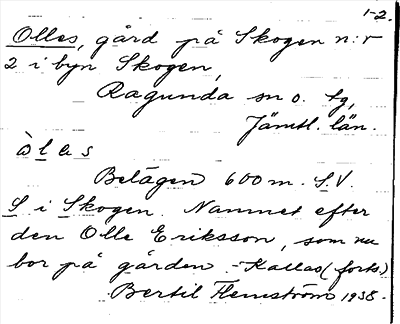 1-2.
Olles, gård på Skogen n:r
2 i byn Skogen,
Ragunda sn o. tg,
Jämtl. län.
òlas
Belägen 600 m. S.V.
S i Skogen. Namnet efter
den Olle Eriksson, som nu
bor på gården. - Kallas (forts)
Bertil Flemström 1938.